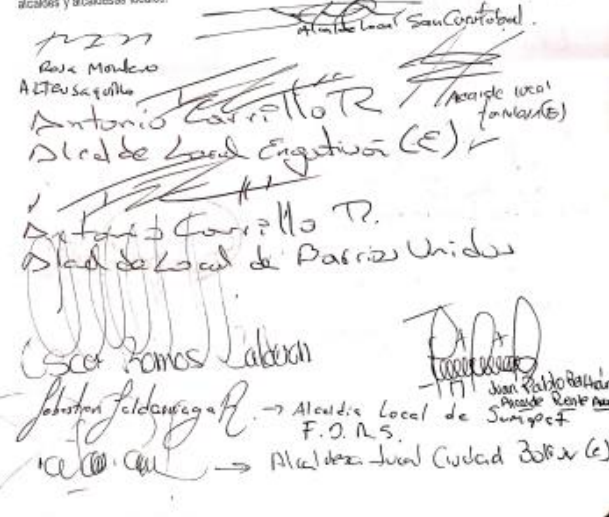 alcaldes y alcaldesas locales.
Alcalde Local San Cristobal.
Rosa Montero
A L Teusaquillo
Alcalde local
Antonio Carrillo R
Alcalde Local Engativá (E)
Antonio Carrillo R.
Alcalde Local de Barrios Unidos
Oscar Ramos Calderon
Juan Pablo Beltrán
Alcalde
→ Alcaldía Local de Sumapaz
F.D.R.S.
→ Alcaldesa Local Ciudad Bolívar (e)